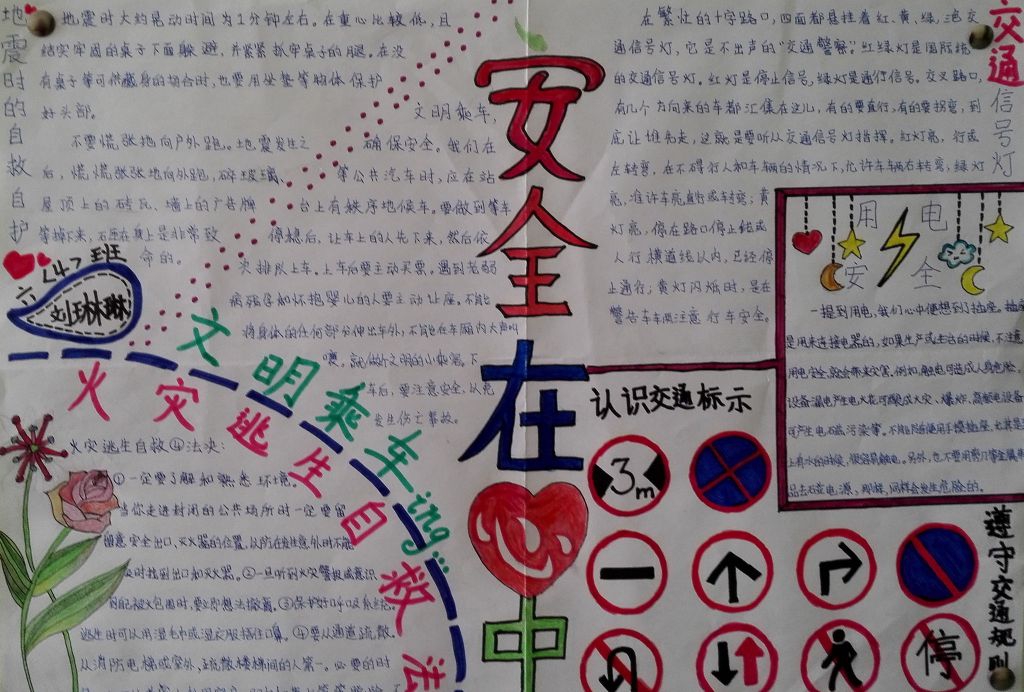 地震时的自救自护
地震时大约晃动时间为1分钟左右。在重心比较低,且
结实牢固的桌子下面躲避,并紧紧抓牢桌子的腿。在没
有桌子等可供藏身的场合时,也要用坐垫等物体保护
好头部。
不要慌张地向户外跑。地震发生之
后,慌慌张张地向外跑,碎玻璃、
屋顶上的砖瓦、墙上的广告牌
等掉下来,
命的。
六247班
林琳
文明乘车,
确保安全。我们在
等公共汽车时,应在站
台上有秩序地候车。要做到等车
停稳后,让车上的人先下来,然后依
次排队上车。上车后要主动买票。遇到老弱
病残孕和怀抱婴儿的人要主动让座。不能
将身体的任何部分伸出车外,不能在车厢内大声叫
车后,要注意安全,以免
发生伤亡事故。
文明乘车ing:
安全在
心
中
交通信号灯
在繁忙的十字路口,四面都悬挂着红、黄、绿,三色交
通信号灯,它是不出声的“交通警察”。红绿灯是国际统
的交通信号灯。红灯是停止信号,绿灯是通行信号。交叉路口,
有几个方向来的车都汇集在这儿,有的要直行,有的要拐弯,到
底让谁先走,这就是要听从交通信号灯指挥。红灯亮,行或
左转弯,在不碍行人和车辆的情况下,允许车辆右转弯,绿灯
亮,准许车亮直行或转弯;黄
灯亮,停在路口停止线或
人行横道线以内,已经停
止通行;黄灯闪烁时,是在
警告车车辆注意行车安全。
用电
安全
一提到用电,我们心中便想到了插座。插座
是用来连接电器的,如果生产或生活的时候,不注意
用电安全,就会带来灾害,例如,触电可造成人身危险,
设备漏电产生电火花可酿成火灾、爆炸,高频电设备
可产生电磁污染等。
上有水的时候,很容易触电。另外,也不要用剪刀等金属
品去碰电源,那样,同样会发生危险的。
火灾逃生自救法
火灾逃生自救④法决:
①一定要了解和熟悉环境。
当你走进封闭的公共场所时一定要留
留意安全出口、灭火器的位置,以防在发生意外时不能
及时找到出口和灭火器。②一旦听到火灾警报或意识
自己被火包围时,要立即想法撤离。③保护好呼吸系统。
逃生时可以用湿毛巾或湿衣服捂住口鼻。④要从通道疏散。
从消防电梯或室外,疏散楼梯间的人第一。必要的时
认识交通标示
3m
停
遵守交通规则